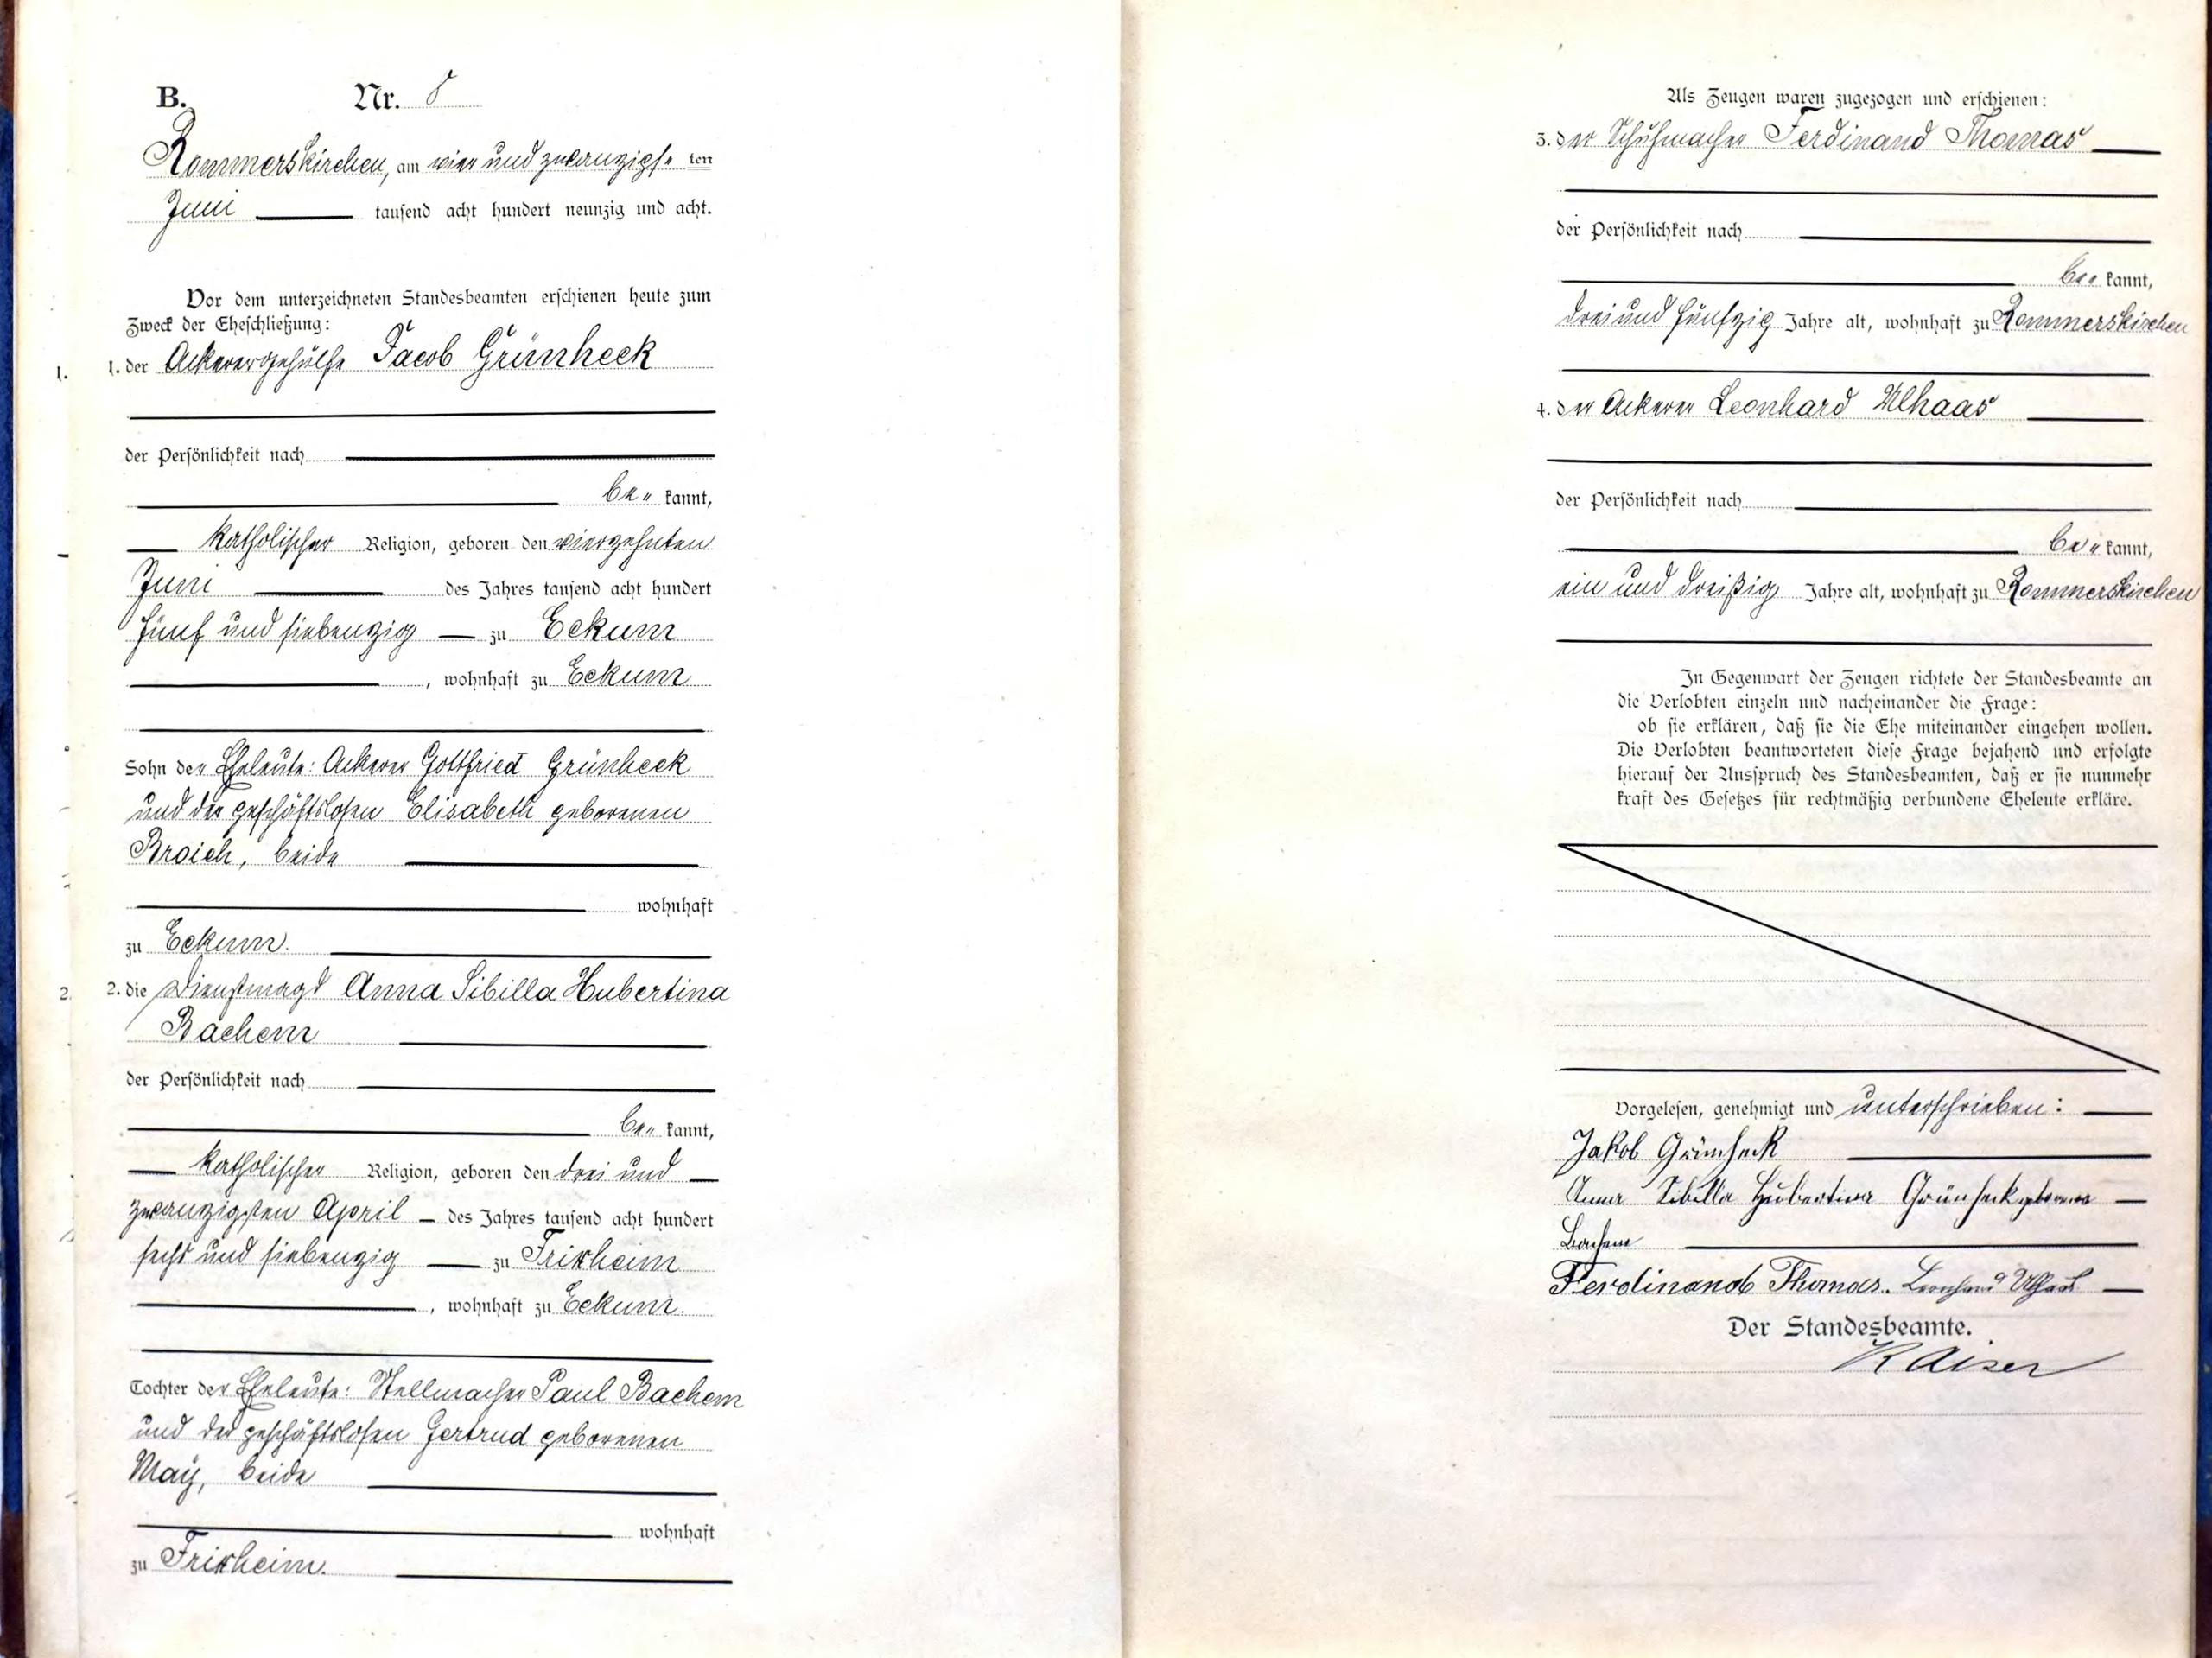 B. Nr. 8
Rommerskirchen, am vier und zwanzigsten
Juni tausend acht hundert neunzig und acht.
Vor dem unterzeichneten Standesbeamten erschienen heute zum
Zweck der Eheschließung:
1. 1. der Ackerergehülfe Jacob Grünheck
der Persönlichkeit nach
be„ kannt,
katholischer Religion, geboren den vierzehnten
Juni des Jahres tausend acht hundert
fünf und siebenzig zu Eckum
, wohnhaft zu Eckum
Sohn der Eheleute: Ackerer Gottfried Grünheck
und der geschäftslosen Elisabeth geborenen
Broich, beide
wohnhaft
zu Eckum.
2. 2. die Dienstmagd Anna Sibilla Hubertina
Bachem
der Persönlichkeit nach
be„ kannt,
katholischer Religion, geboren den drei und
zwanzigsten April des Jahres tausend acht hundert
sechs und siebenzig zu Frixheim
, wohnhaft zu Eckum.
Tochter der Eheleute: Stellmacher Paul Bachem
und der geschäftslosen Gertrud geborenen
Maÿ, beide
wohnhaft
zu Frixheim.
Als Zeugen waren zugezogen und erschienen:
3. der Schuhmacher Ferdinand Thomas
der Persönlichkeit nach
be„ kannt,
drei und fünfzig Jahre alt, wohnhaft zu Rommerskirchen
4. der Ackerer Leonhard Ulhaas
der Persönlichkeit nach
be„ kannt,
ein und dreißig Jahre alt, wohnhaft zu Rommerskirchen
In Gegenwart der Zeugen richtete der Standesbeamte an
die Verlobten einzeln und nacheinander die Frage:
ob sie erklären, daß sie die Ehe miteinander eingehen wollen.
Die Verlobten beantworteten diese Frage bejahend und erfolgte
hierauf der Ausspruch des Standesbeamten, daß er sie nunmehr
kraft des Gesetzes für rechtmäßig verbundene Eheleute erkläre.
Vorgelesen, genehmigt und unterschrieben:
Jakob Grünheck
Anna Sibilla Hubertina Grünheck geborene
Bachem
Ferdinand Thomas. Leonhard Ulhaas
Der Standesbeamte.
Kaiser